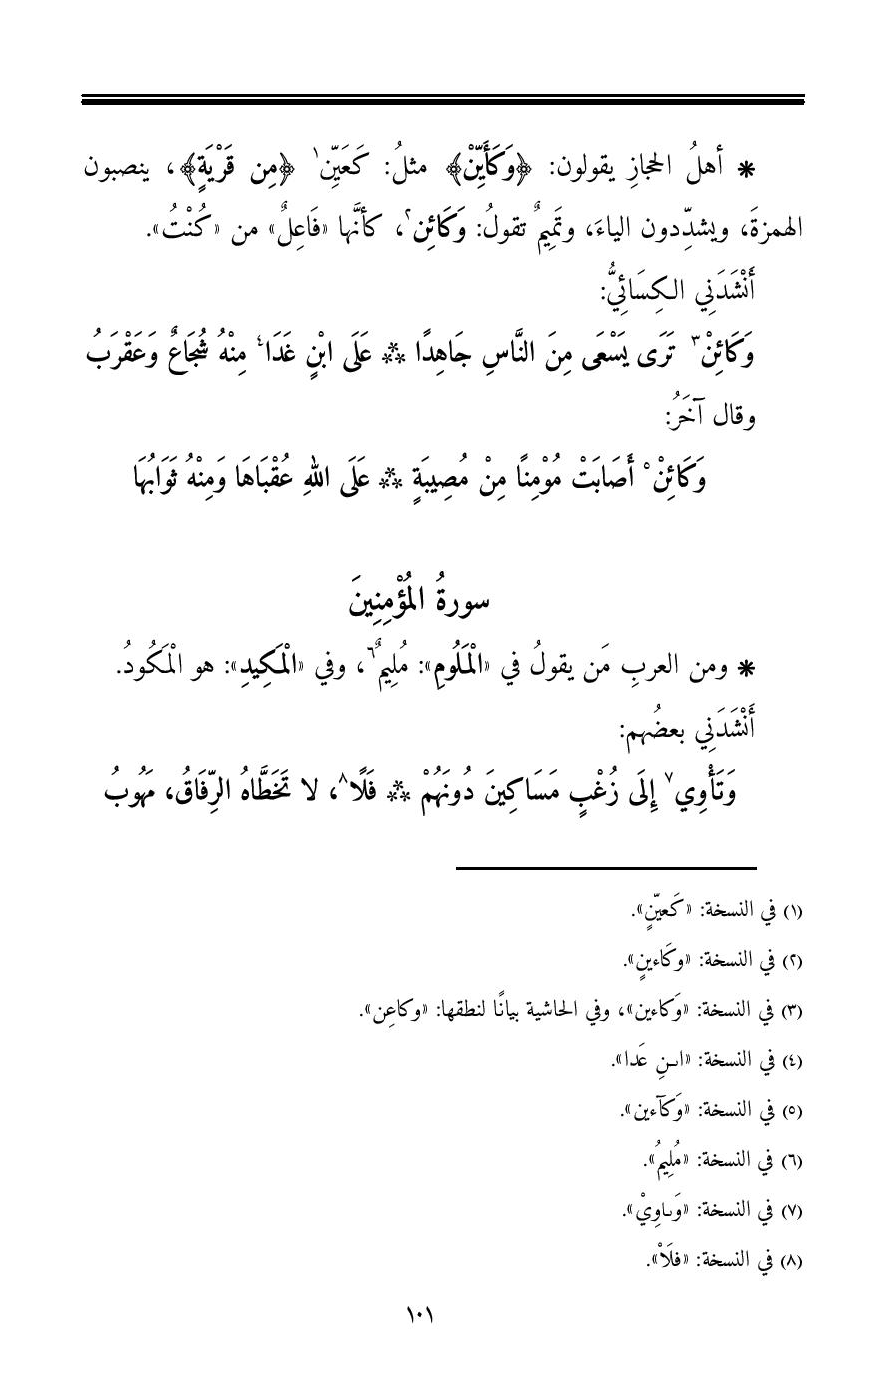 * أهلُ الحجازِ يقولون: ﴿وَكَأَيِّنْ﴾ مثلُ: كَعَيِّن١ ﴿مِن قَرْيَةٍ﴾، ينصبون
الهمزةَ، ويشدِّدون الياءَ، وتَمِيمٌ تقولُ: وَكَائِن٢، كأنَّها «فَاعِلٌ» من «كُنْتُ».
أَنْشَدَنِي الكِسَائِيُّ:
وَكَائِنْ٣ تَرَى يَسْعَى مِنَ النَّاسِ جَاهِدًا ** عَلَى ابْنٍ غَدَا٤ مِنْهُ شُجَاعٌ وَعَقْرَبُ
وقال آخَرُ:
وَكَائِنْ٥ أَصَابَتْ مُؤْمِنًا مِنْ مُصِيبَةٍ ** عَلَى اللهِ عُقْبَاهَا وَمِنْهُ ثَوَابُهَا
سورةُ المُؤْمِنِينَ
* ومن العربِ مَن يقولُ في «الْمَلُومِ»: مُلِيمٌ٦، وفي «الْمَكِيدِ»: هو الْمَكُودُ.
أَنْشَدَنِي بعضُهم:
وَتَأْوِي٧ إِلَى زُغْبٍ مَسَاكِينَ دُونَهُمْ ** فَلًا٨، لا تَخَطَّاهُ الرِّفَاقُ، مَهُوبُ
(١) في النسخة: «كَعيّنٍ».
(٢) في النسخة: «وكَاءينٍ».
(٣) في النسخة: «وَكاءين»، وفي الحاشية بيانًا لنطقها: «وكاعِن».
(٤) في النسخة: «اىـنِ عَدا».
(٥) في النسخة: «وَكآءين».
(٦) في النسخة: «مُلِيمُ».
(٧) في النسخة: «وَىاوِيْ».
(٨) في النسخة: «فلَاْ».
١٠١